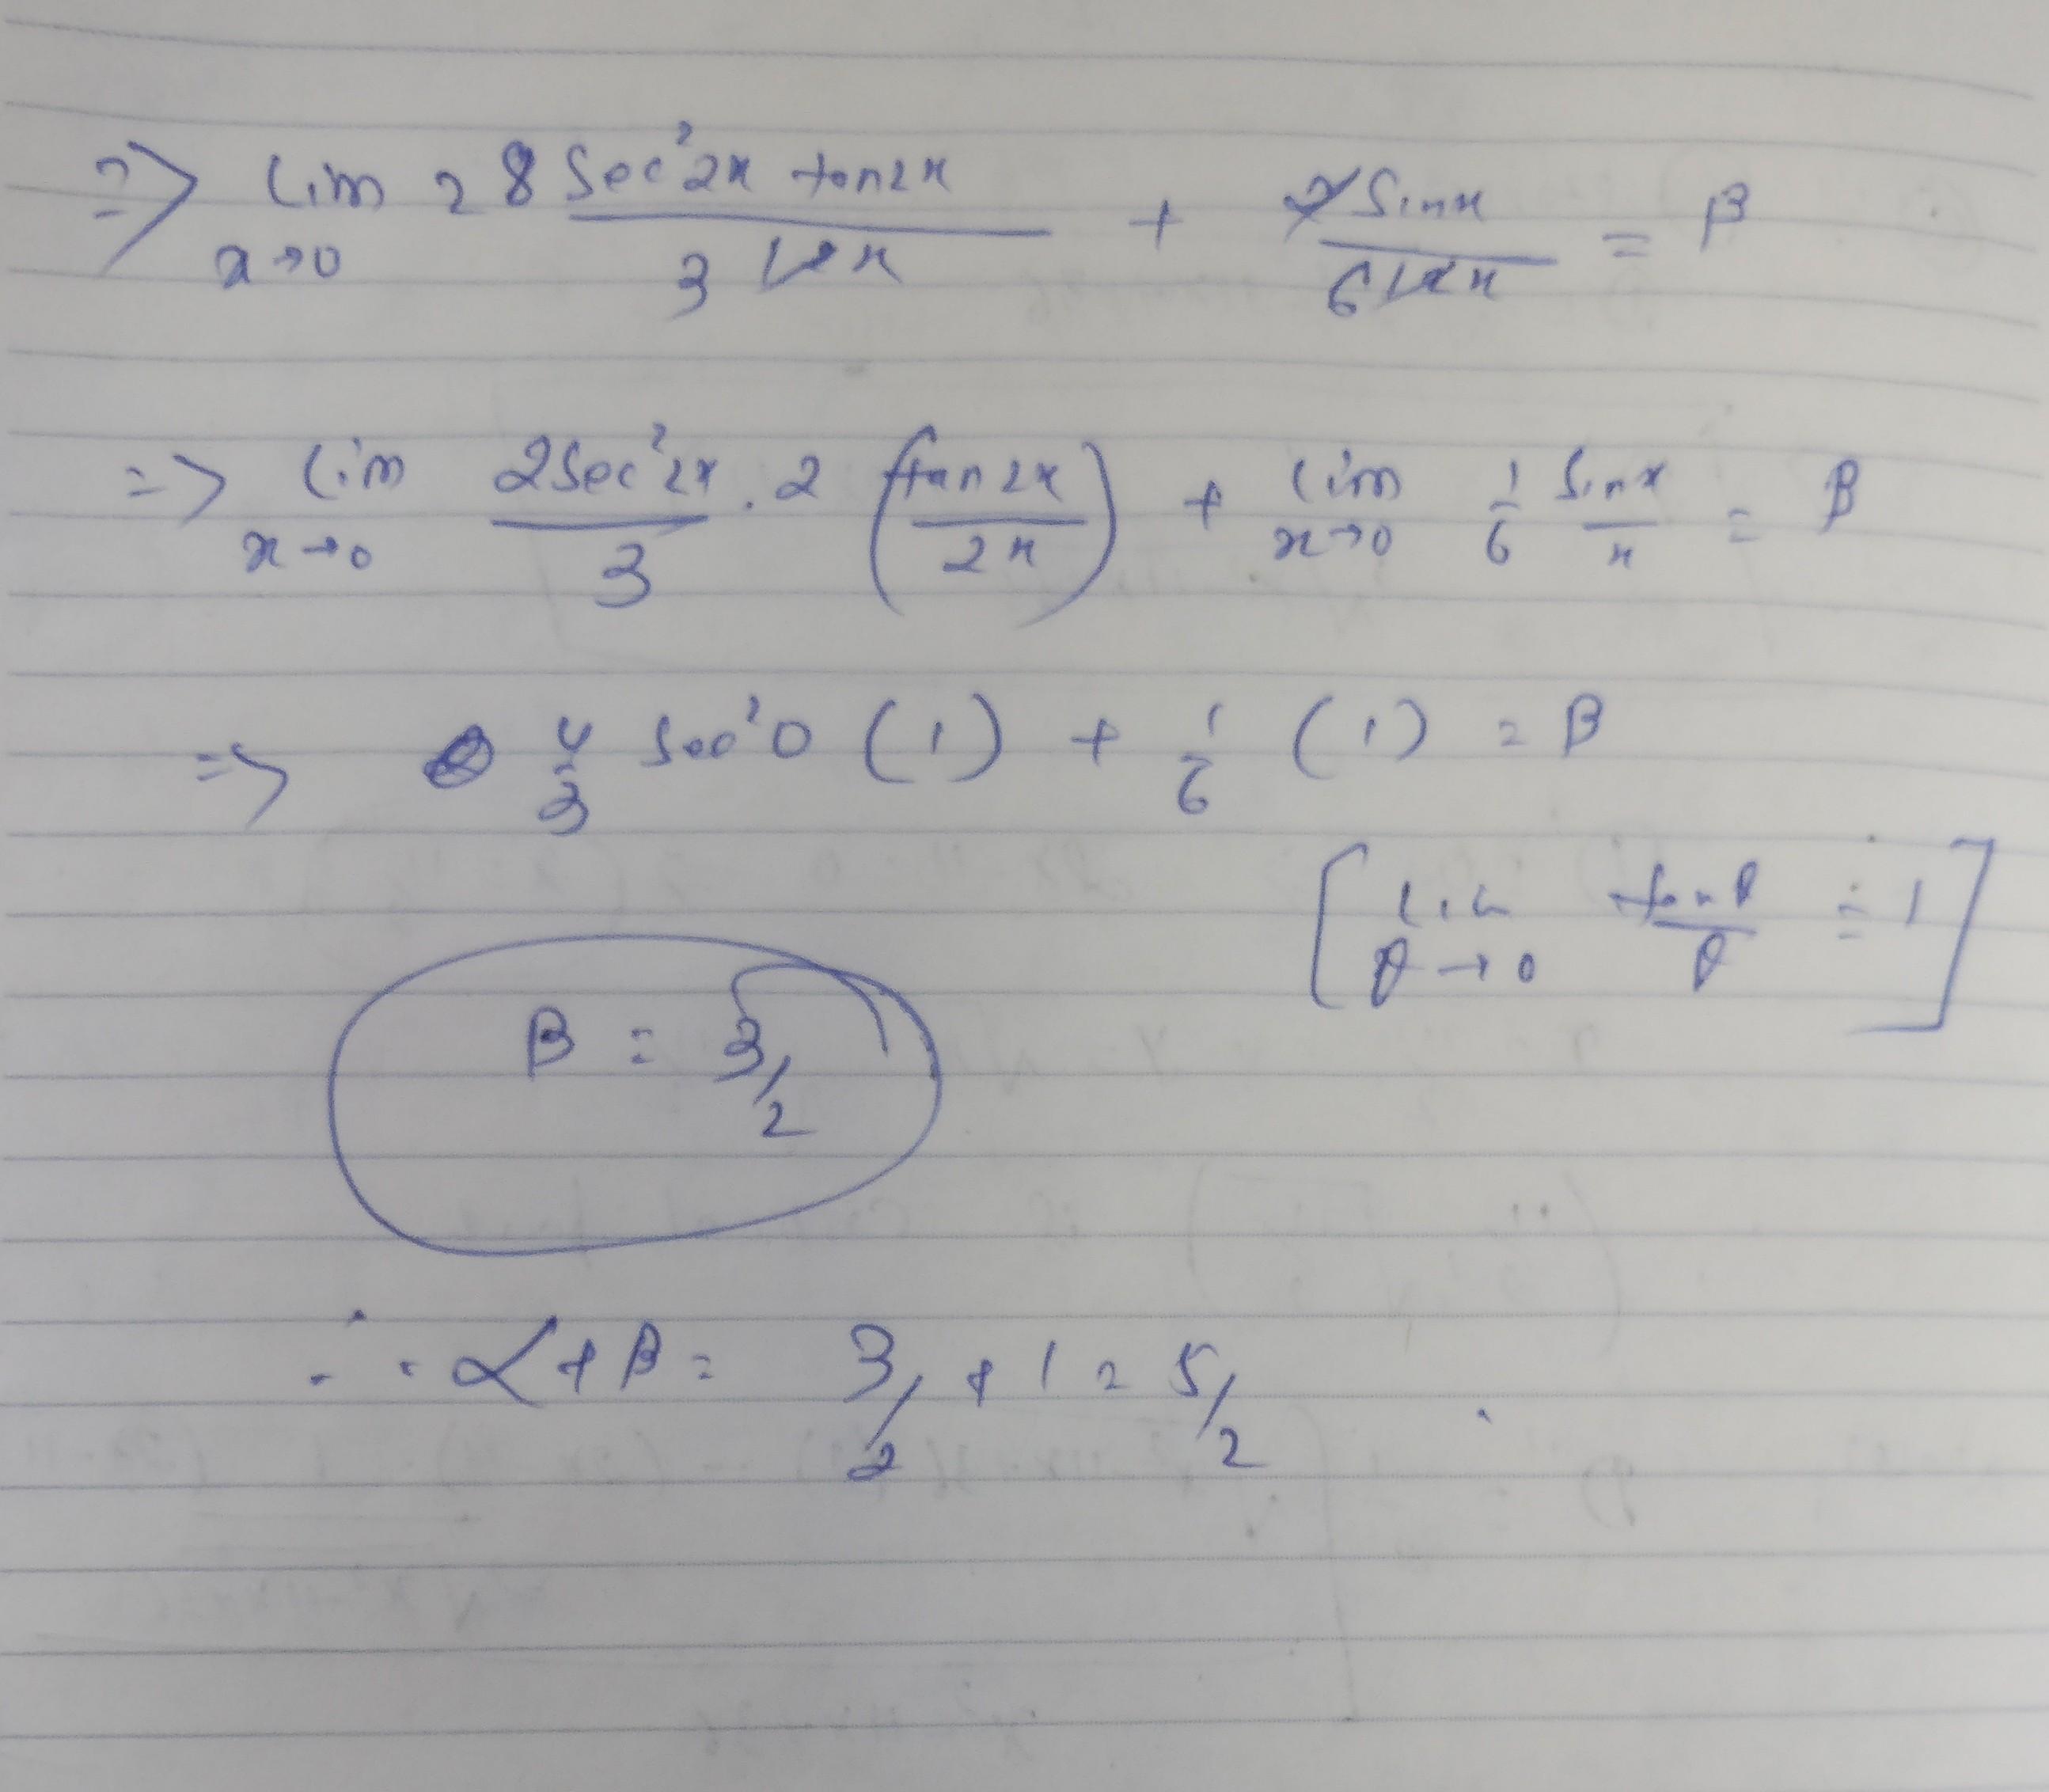 ⇒ lim x→0 2 8 Sec²2x tan2x / 3 12x + 2 Sinx / 6 12x = β
⇒ lim x→0 2Sec²2x / 3 . 2 (tan 2x / 2x) + lim x→0 1/6 Sinx / x = β
⇒ 4/3 Sec²0 (1) + 1/6 (1) = β
[lim θ→0 tanθ / θ = 1]
β = 3/2
∴ α + β = 3/2 + 1 = 5/2